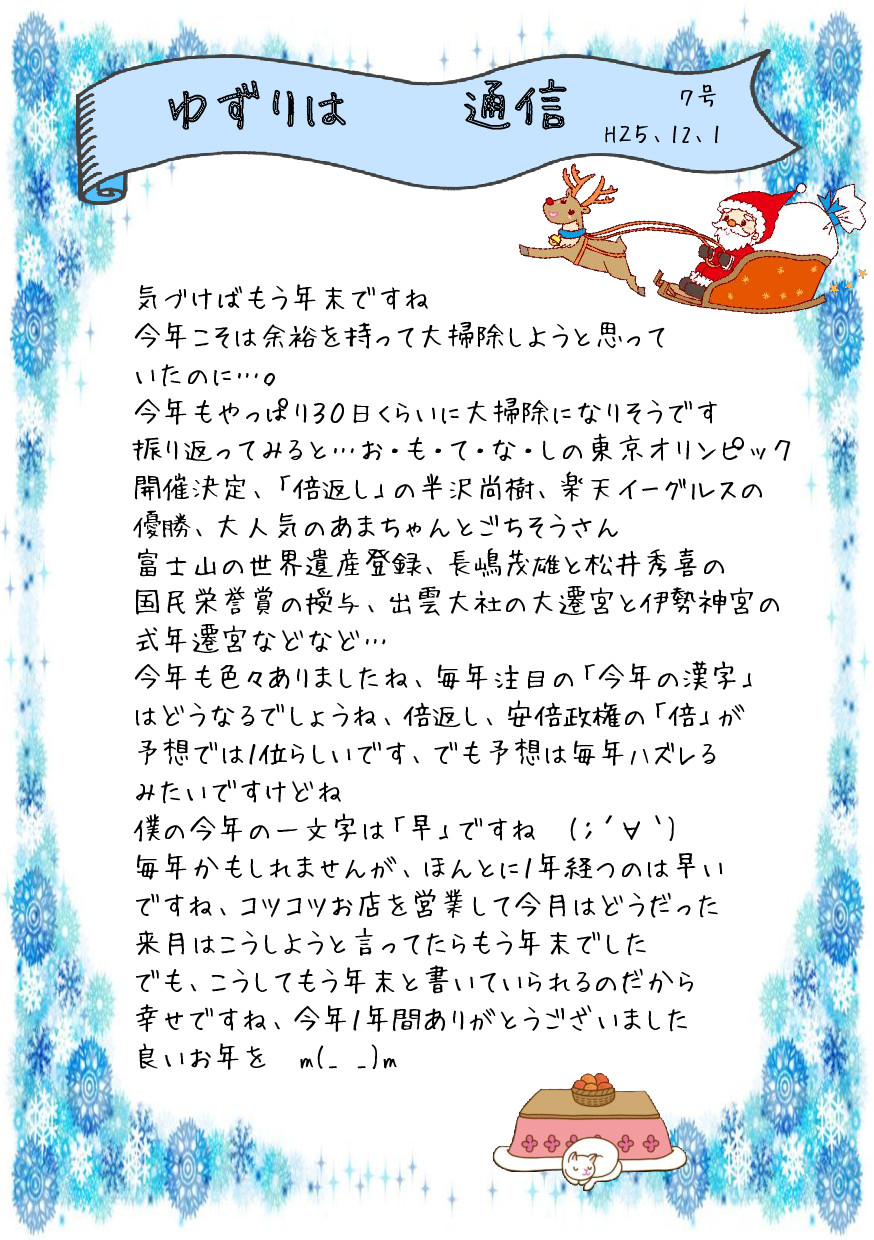 ゆずりは　通信
7号
H25、12、1
気づけばもう年末ですね
今年こそは余裕を持って大掃除しようと思って
いたのに…。
今年もやっぱり30日くらいに大掃除になりそうです
振り返ってみると…お・も・て・な・しの東京オリンピック
開催決定、「倍返し」の半沢尚樹、楽天イーグルスの
優勝、大人気のあまちゃんとごちそうさん
富士山の世界遺産登録、長嶋茂雄と松井秀喜の
国民栄誉賞の授与、出雲大社の大遷宮と伊勢神宮の
式年遷宮などなど…
今年も色々ありましたね、毎年注目の「今年の漢字」
はどうなるでしょうね、倍返し、安倍政権の「倍」が
予想では1位らしいです、でも予想は毎年ハズレる
みたいですけどね
僕の今年の一文字は「早」ですね　(;´∀｀)
毎年かもしれませんが、ほんとに1年経つのは早い
ですね、コツコツお店を営業して今月はどうだった
来月はこうしようと言ってたらもう年末でした
でも、こうしてもう年末と書いていられるのだから
幸せですね、今年1年間ありがとうございました
良いお年を　m(_ _)m